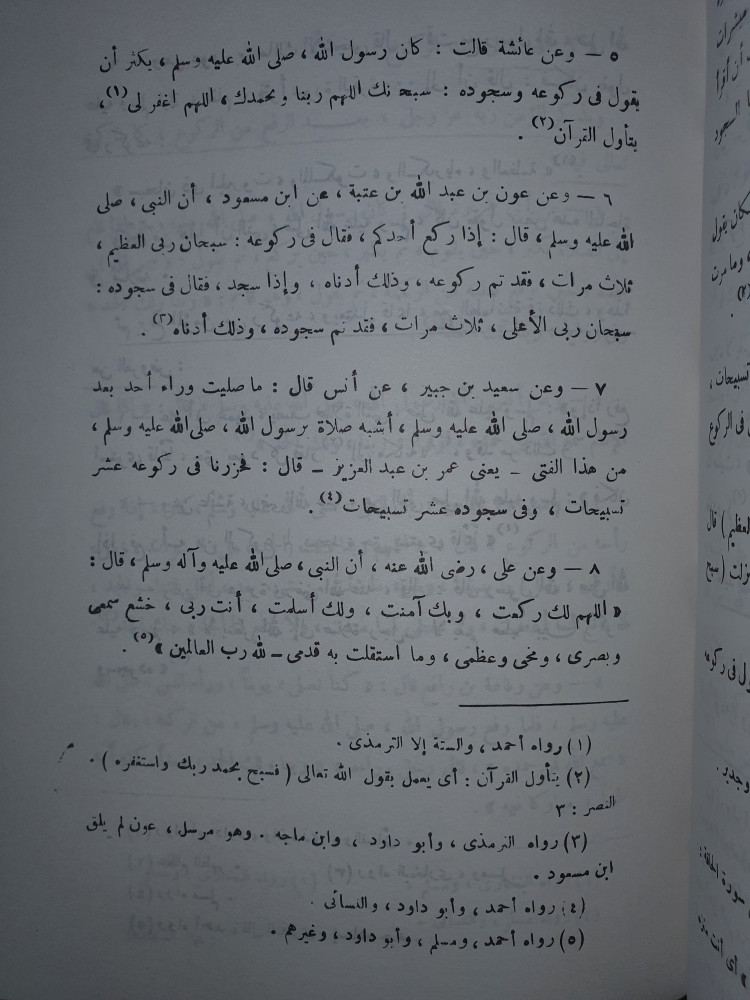 ٥ – وعن عائشة قالت : كان رسول الله ، صلى الله عليه وسلم ، يكثر أن
يقول فى ركوعه وسجوده : سبحنك اللهم ربنا وبحمدك ، اللهم اغفر لى (١) ،
يتأول القرآن (٢) .
٦ – وعن عون بن عبد الله بن عتبة ، عن ابن مسعود ، أن النبى ، صلى
الله عليه وسلم ، قال : إذا ركع أحدكم ، فقال فى ركوعه : سبحان ربى العظيم ،
ثلاث مرات ، فقد تم ركوعه ، وذلك أدناه ، وإذا سجد ، فقال فى سجوده :
سبحان ربى الأعلى ، ثلاث مرات ، فقد تم سجوده ، وذلك أدناه (٣) .
٧ – وعن سعيد بن جبير ، عن أنس قال : ما صليت وراء أحد بعد
رسول الله ، صلى الله عليه وسلم ، أشبه صلاة برسول الله ، صلى الله عليه وسلم ،
من هذا الفتى – يعنى عمر بن عبد العزيز – قال : فحزرنا فى ركوعه عشر
تسبيحات ، وفى سجوده عشر تسبيحات (٤) .
٨ – وعن على ، رضى الله عنه ، أن النبى ، صلى الله عليه وآله وسلم ، قال :
« اللهم لك ركعت ، وبك آمنت ، ولك أسلمت ، أنت ربى ، خشع سمعى
وبصرى ، ومخى وعظمى ، وما استقلت به قدمى – لله رب العالمين » (٥) .
(١) رواه أحمد ، والستة إلا الترمذى .
(٢) يتأول القرآن : أى يعمل بقول الله تعالى ( فسبح بحمد ربك واستغفره ) .
النصر : ٣
(٣) رواه الترمذى ، وأبو داود ، وابن ماجه . وهو مرسل ، عون لم يلق
ابن مسعود .
(٤) رواه أحمد ، وأبو داود ، والنسائى .
(٥) رواه أحمد ، ومسلم ، وأبو داود ، وغيرهم .